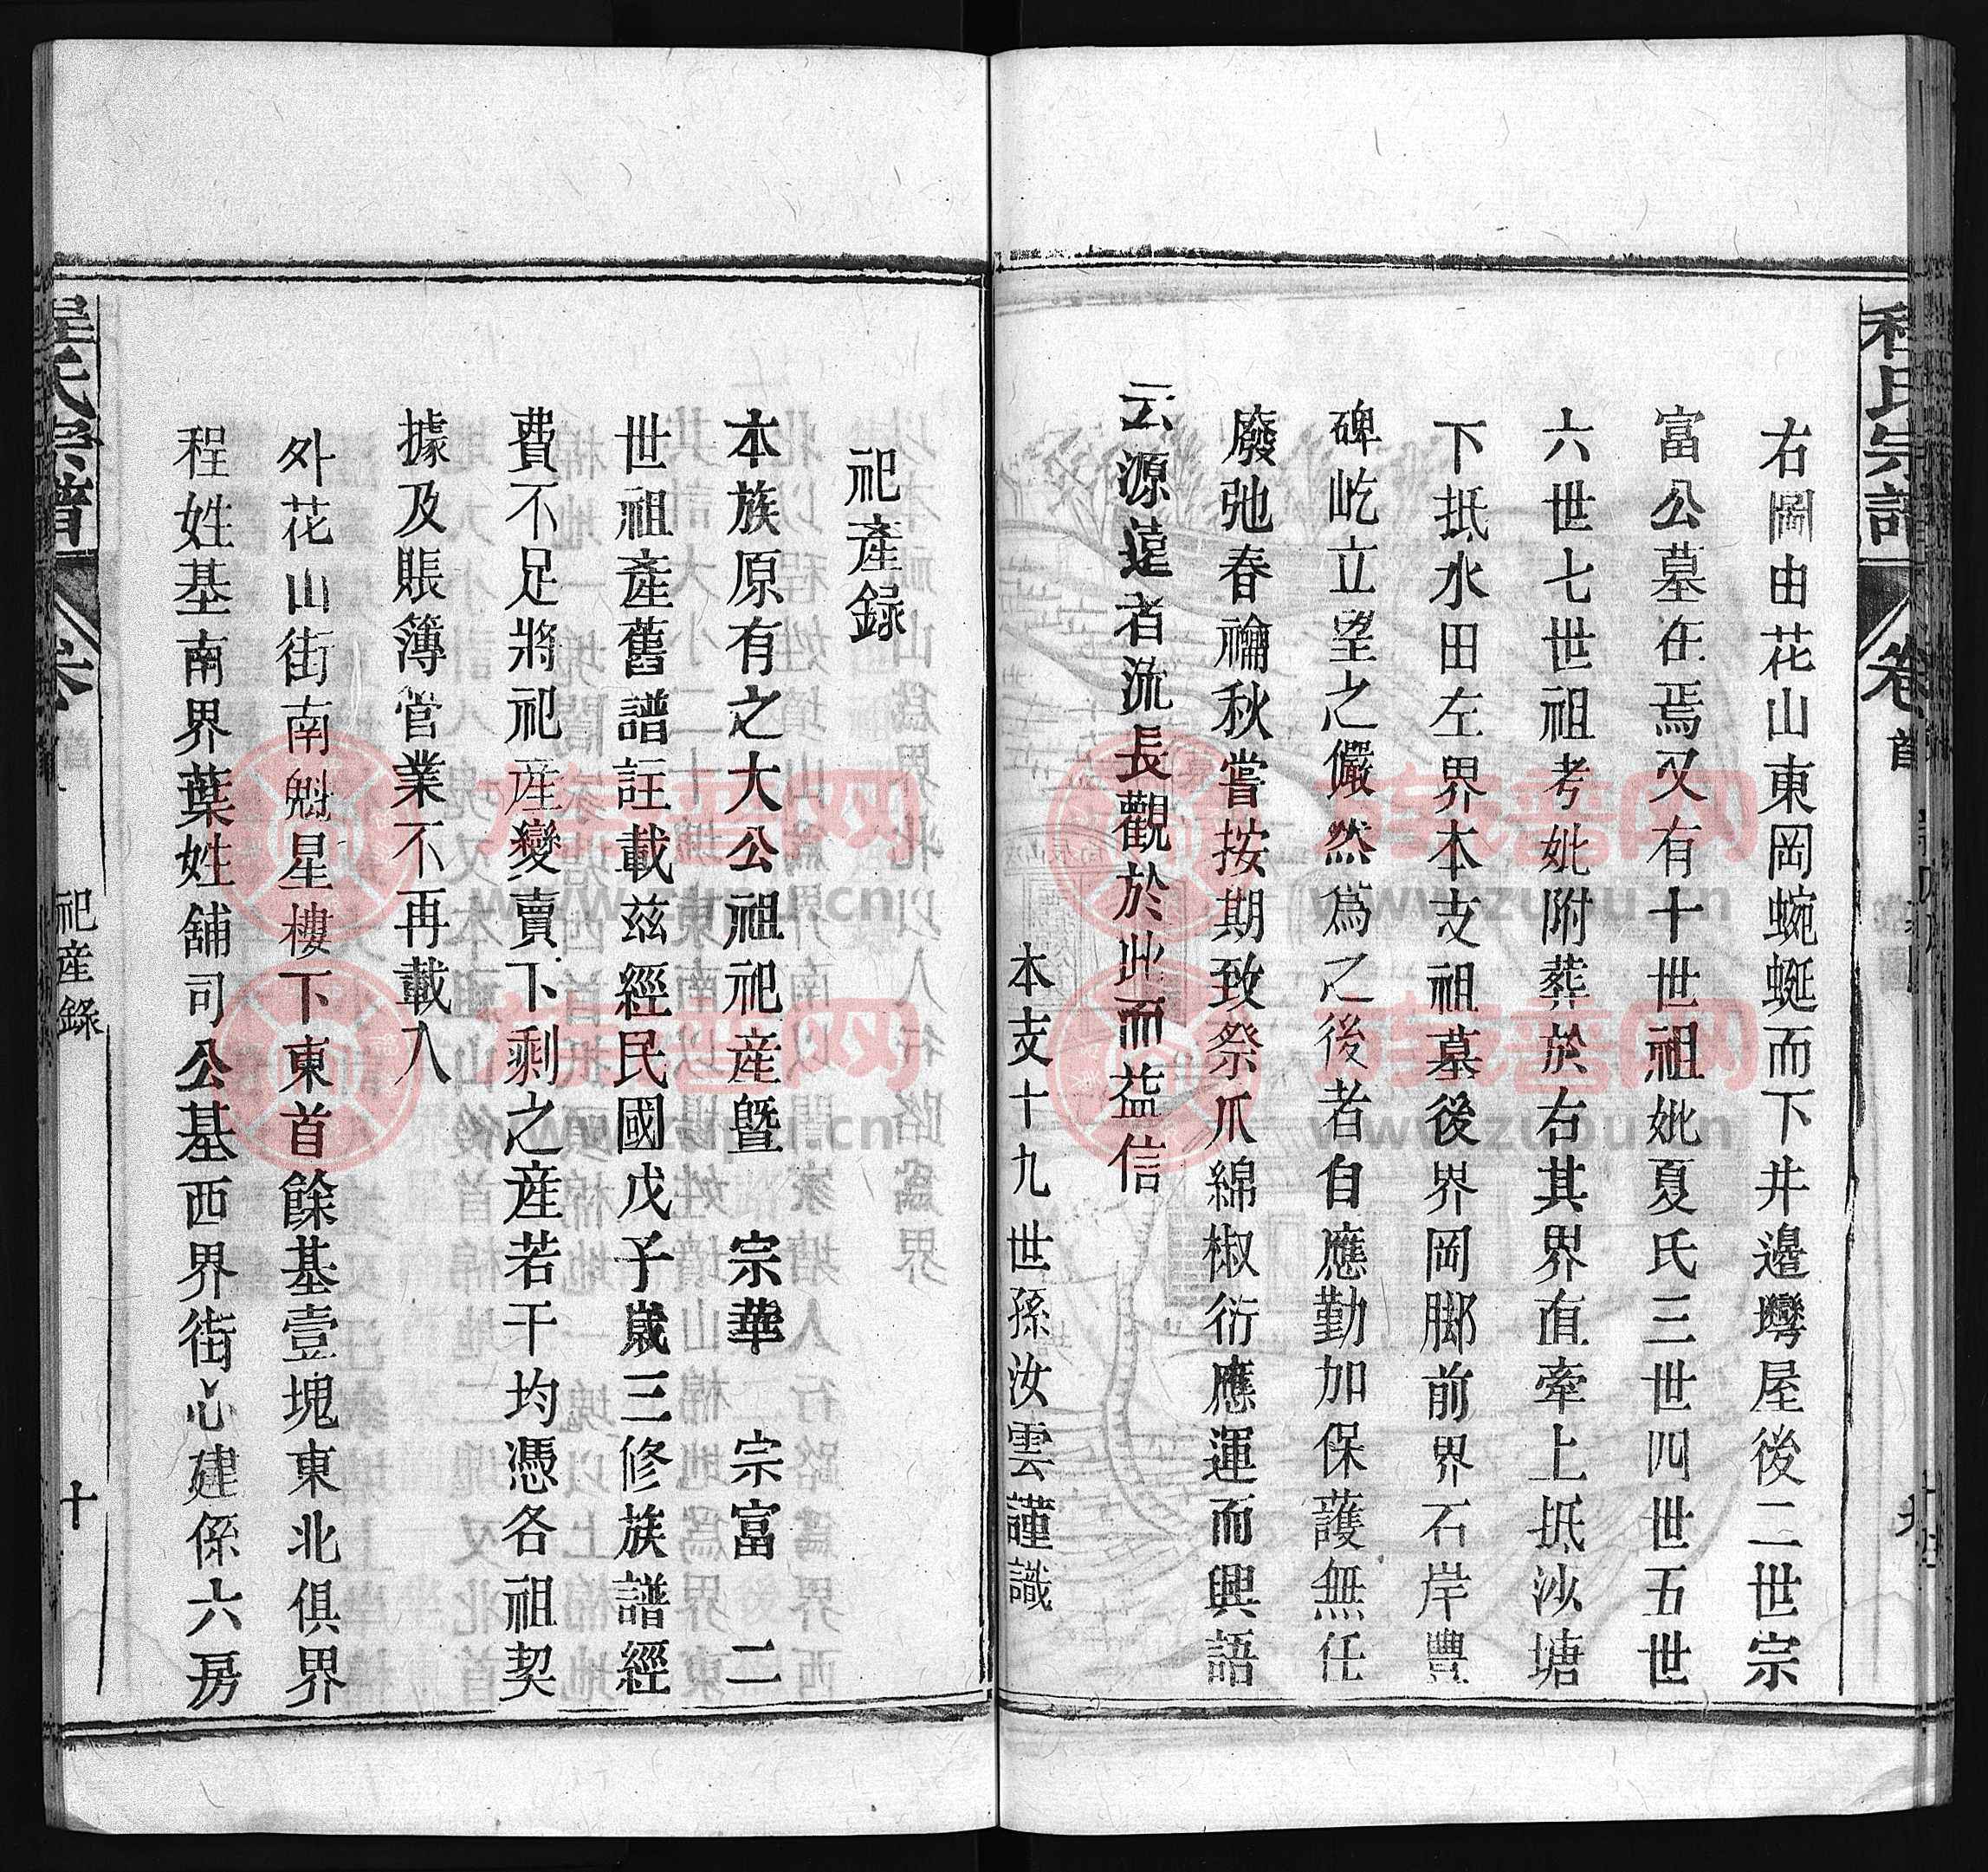 程氏宗譜
卷首
右圖由花山東岡蜿蜒而下井邊灣屋後二世宗
富公墓在焉又有十世祖妣夏氏三世四世五世
六世七世祖考妣附葬於右其界直牽上抵沙塘
下抵水田左界本支祖墓後界岡腳前界石岸豐
碑屹立望之儼然為之後者自應勤加保護無任
廢弛春禴秋嘗按期致祭爪綿椒衍應運而興語
云源遠者流長觀於此而益信
本支十九世孫汝雲謹識
祀產録
本族原有之大公祖祀産曁 宗華 宗富 二
世祖產舊譜註載茲經民國戊子嵗三修族譜經
費不足將祀産變賣下剩之産若干均憑各祖契
據及賬簿管業不再載入
外花山街南魁星樓下東首餘基壹塊東北俱界
程姓基南界葉姓舖司公基西界街心建係六房
程氏宗譜
卷首
祀産錄
十
族譜网
www.zupu.cn
族譜网
www.zupu.cn
族譜网
www.zupu.cn
族譜网
www.zupu.cn